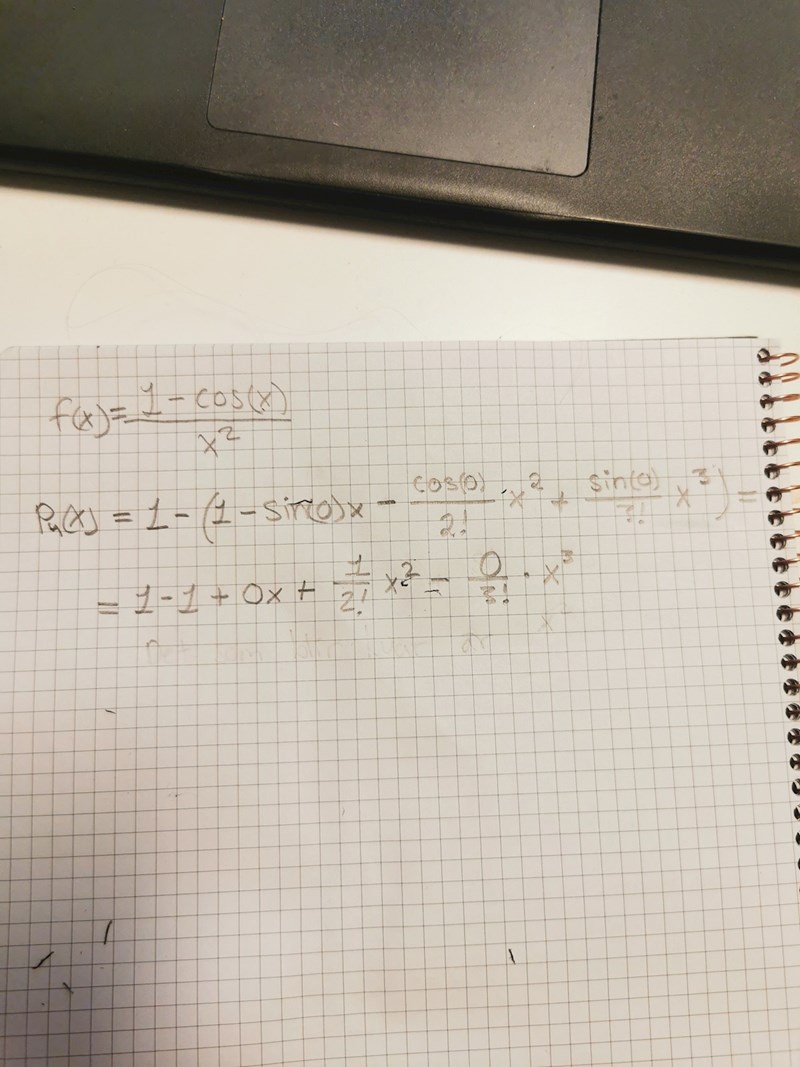 f(x) = 1 - cos(x) / x²
Pn(x) = 1 - (1 - sin(0)x - cos(0)/2! · x² + sin(0)/3! x³) =
= 1 - 1 + 0x + 1/2! x² - 0/3! · x³